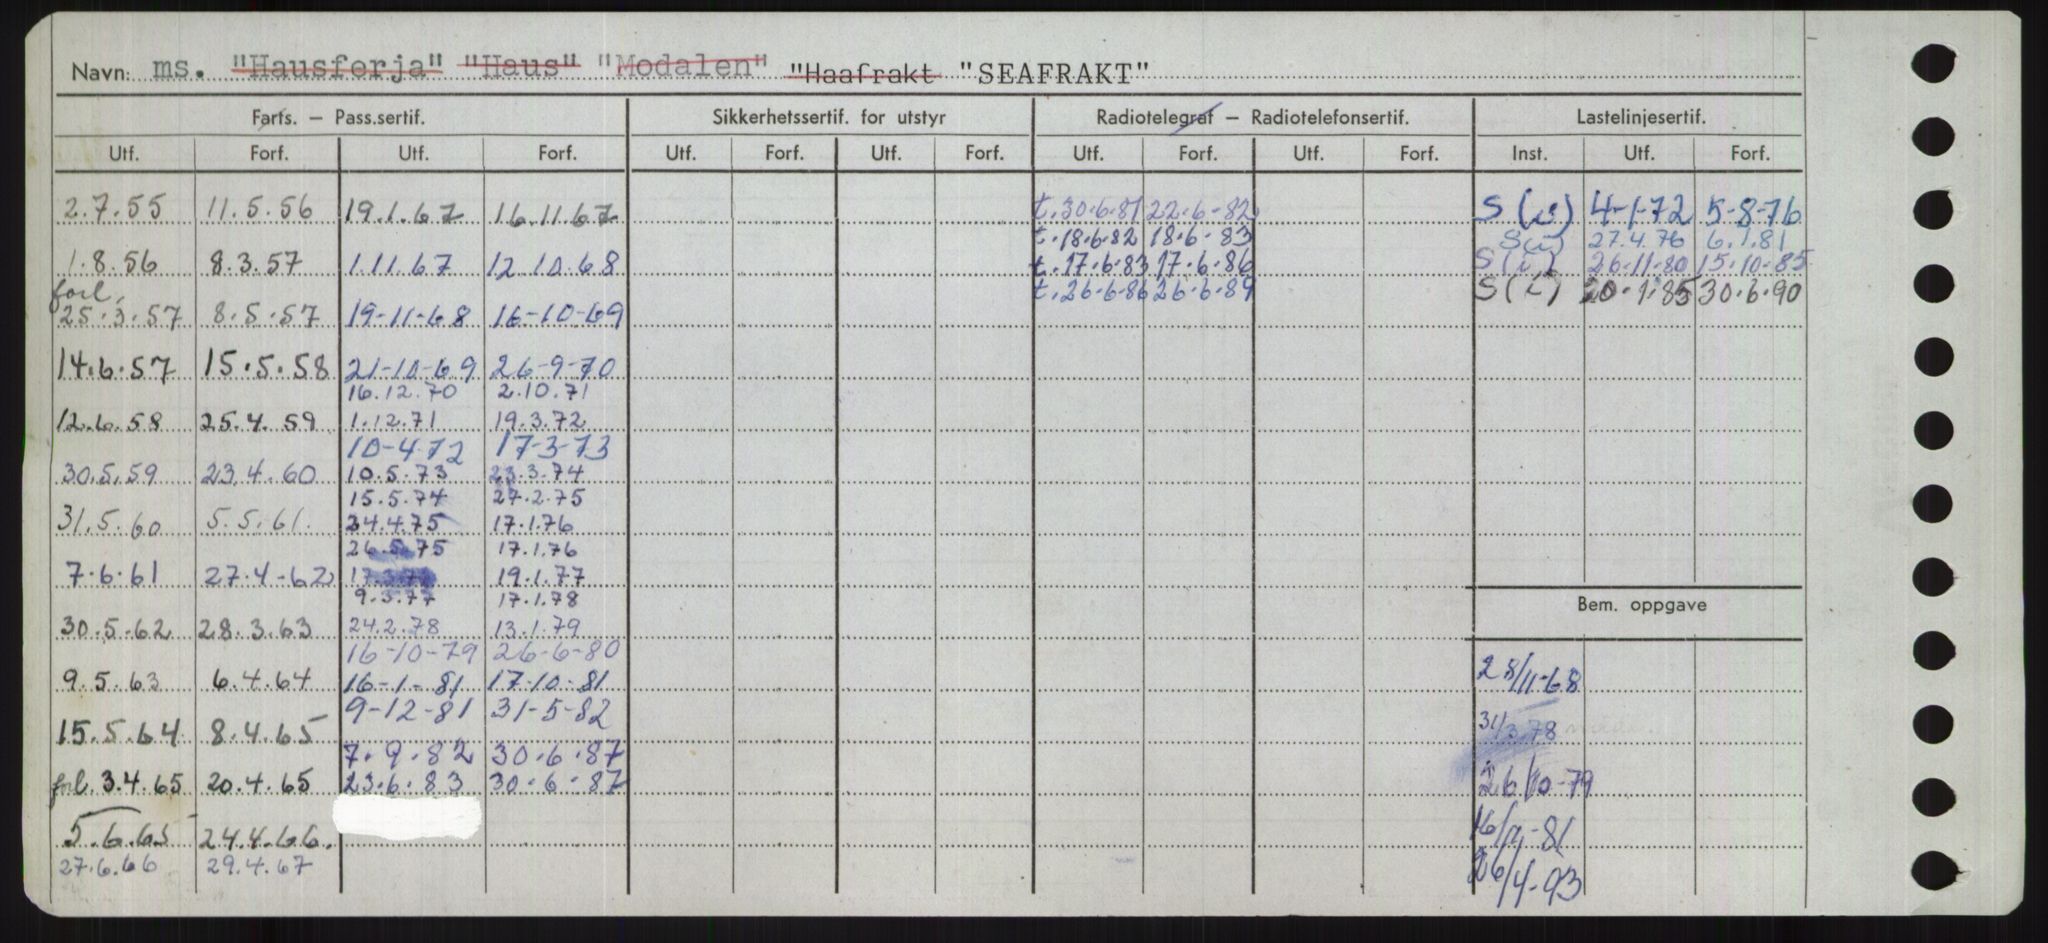 Navn: ms. "Hausferja" "Haus" "Modalen" "Haafrakt "SEAFRAKT"
Farts. — Pass.sertif. Sikkerhetssertif. for utstyr Radiotelegraf — Radiotelefonsertif. Lastelinjesertif.
Utf. Forf. Utf. Forf. Utf. Forf. Utf. Forf. Utf. Forf. Utf. Forf. Inst. Utf. Forf.
2.7.55 11.5.56 19.1.67 16.11.67 t.30.6.81 22.6.82 S (i) 4-1-72 5-8-76
t.18.6.82 18.6.83 S(i) 27.4.76 6.1.81
1.8.56 8.3.57 1.11.67 12.10.68 t.17.6.83 17.6.86 S(i) 26.11.80 15.10.85
forl. t.26.6.86 26.6.89 S(i) 20.1.85 30.6.90
25.3.57 8.5.57 19-11-68 16-10-69
14.6.57 15.5.58 21-10-69 26-9-70
16.12.70 2.10.71
12.6.58 25.4.59 1.12.71 19.3.72
10-4-72 17-3-73
30.5.59 23.4.60 10.5.73 23.3.74
15.5.74 27.2.75
31.5.60 5.5.61. 24.4.75 17.1.76
26.5.75 17.1.76
7.6.61 27.4-62 19.1.77
9.3.77 17.1.78
Bem. oppgave
30.5.62 28.3.63 24.2.78 13.1.79
16-10-79 26-6-80
9.5.63 6.4.64 16-1-81 17-10-81 28/11-68
9-12-81 31-5-82
15.5.64 8.4.65 31/3.78
7.9.82 30.6.87
forl. 3.4.65 20.4.65 23.6.83 30.6.87 26/10-79
5.6.65 24.4.66. 81
27.6.66 29.4.67 26/4-93